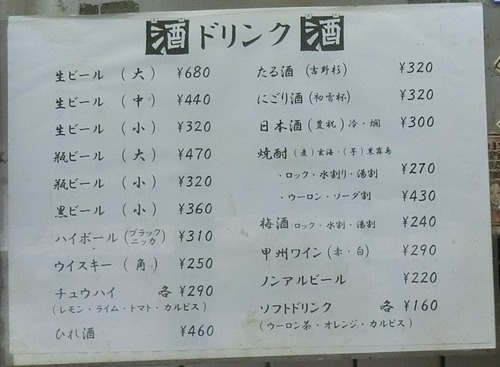 酒 ドリンク 酒
生ビール (大) ¥680
生ビール (中) ¥440
生ビール (小) ¥320
瓶ビール (大) ¥470
瓶ビール (小) ¥320
黒ビール (小) ¥360
ハイボール (ブラックニッカ) ¥310
ウイスキー (角) ¥250
チュウハイ 各 ¥290
(レモン・ライム・トマト・カルピス)
ひれ酒 ¥460
たる酒 (吉野杉) ¥320
にごり酒 (初雪杯) ¥320
日本酒 (豊祝) 冷・燗 ¥300
焼酎 (麦)玄海・(芋)黒霧島
・ロック・水割り・湯割 ¥270
・ウーロン・ソーダ割 ¥430
梅酒 ロック・水割・湯割 ¥240
甲州ワイン (赤・白) ¥290
ノンアルビール ¥220
ソフトドリンク 各 ¥160
(ウーロン茶・オレンジ・カルピス)